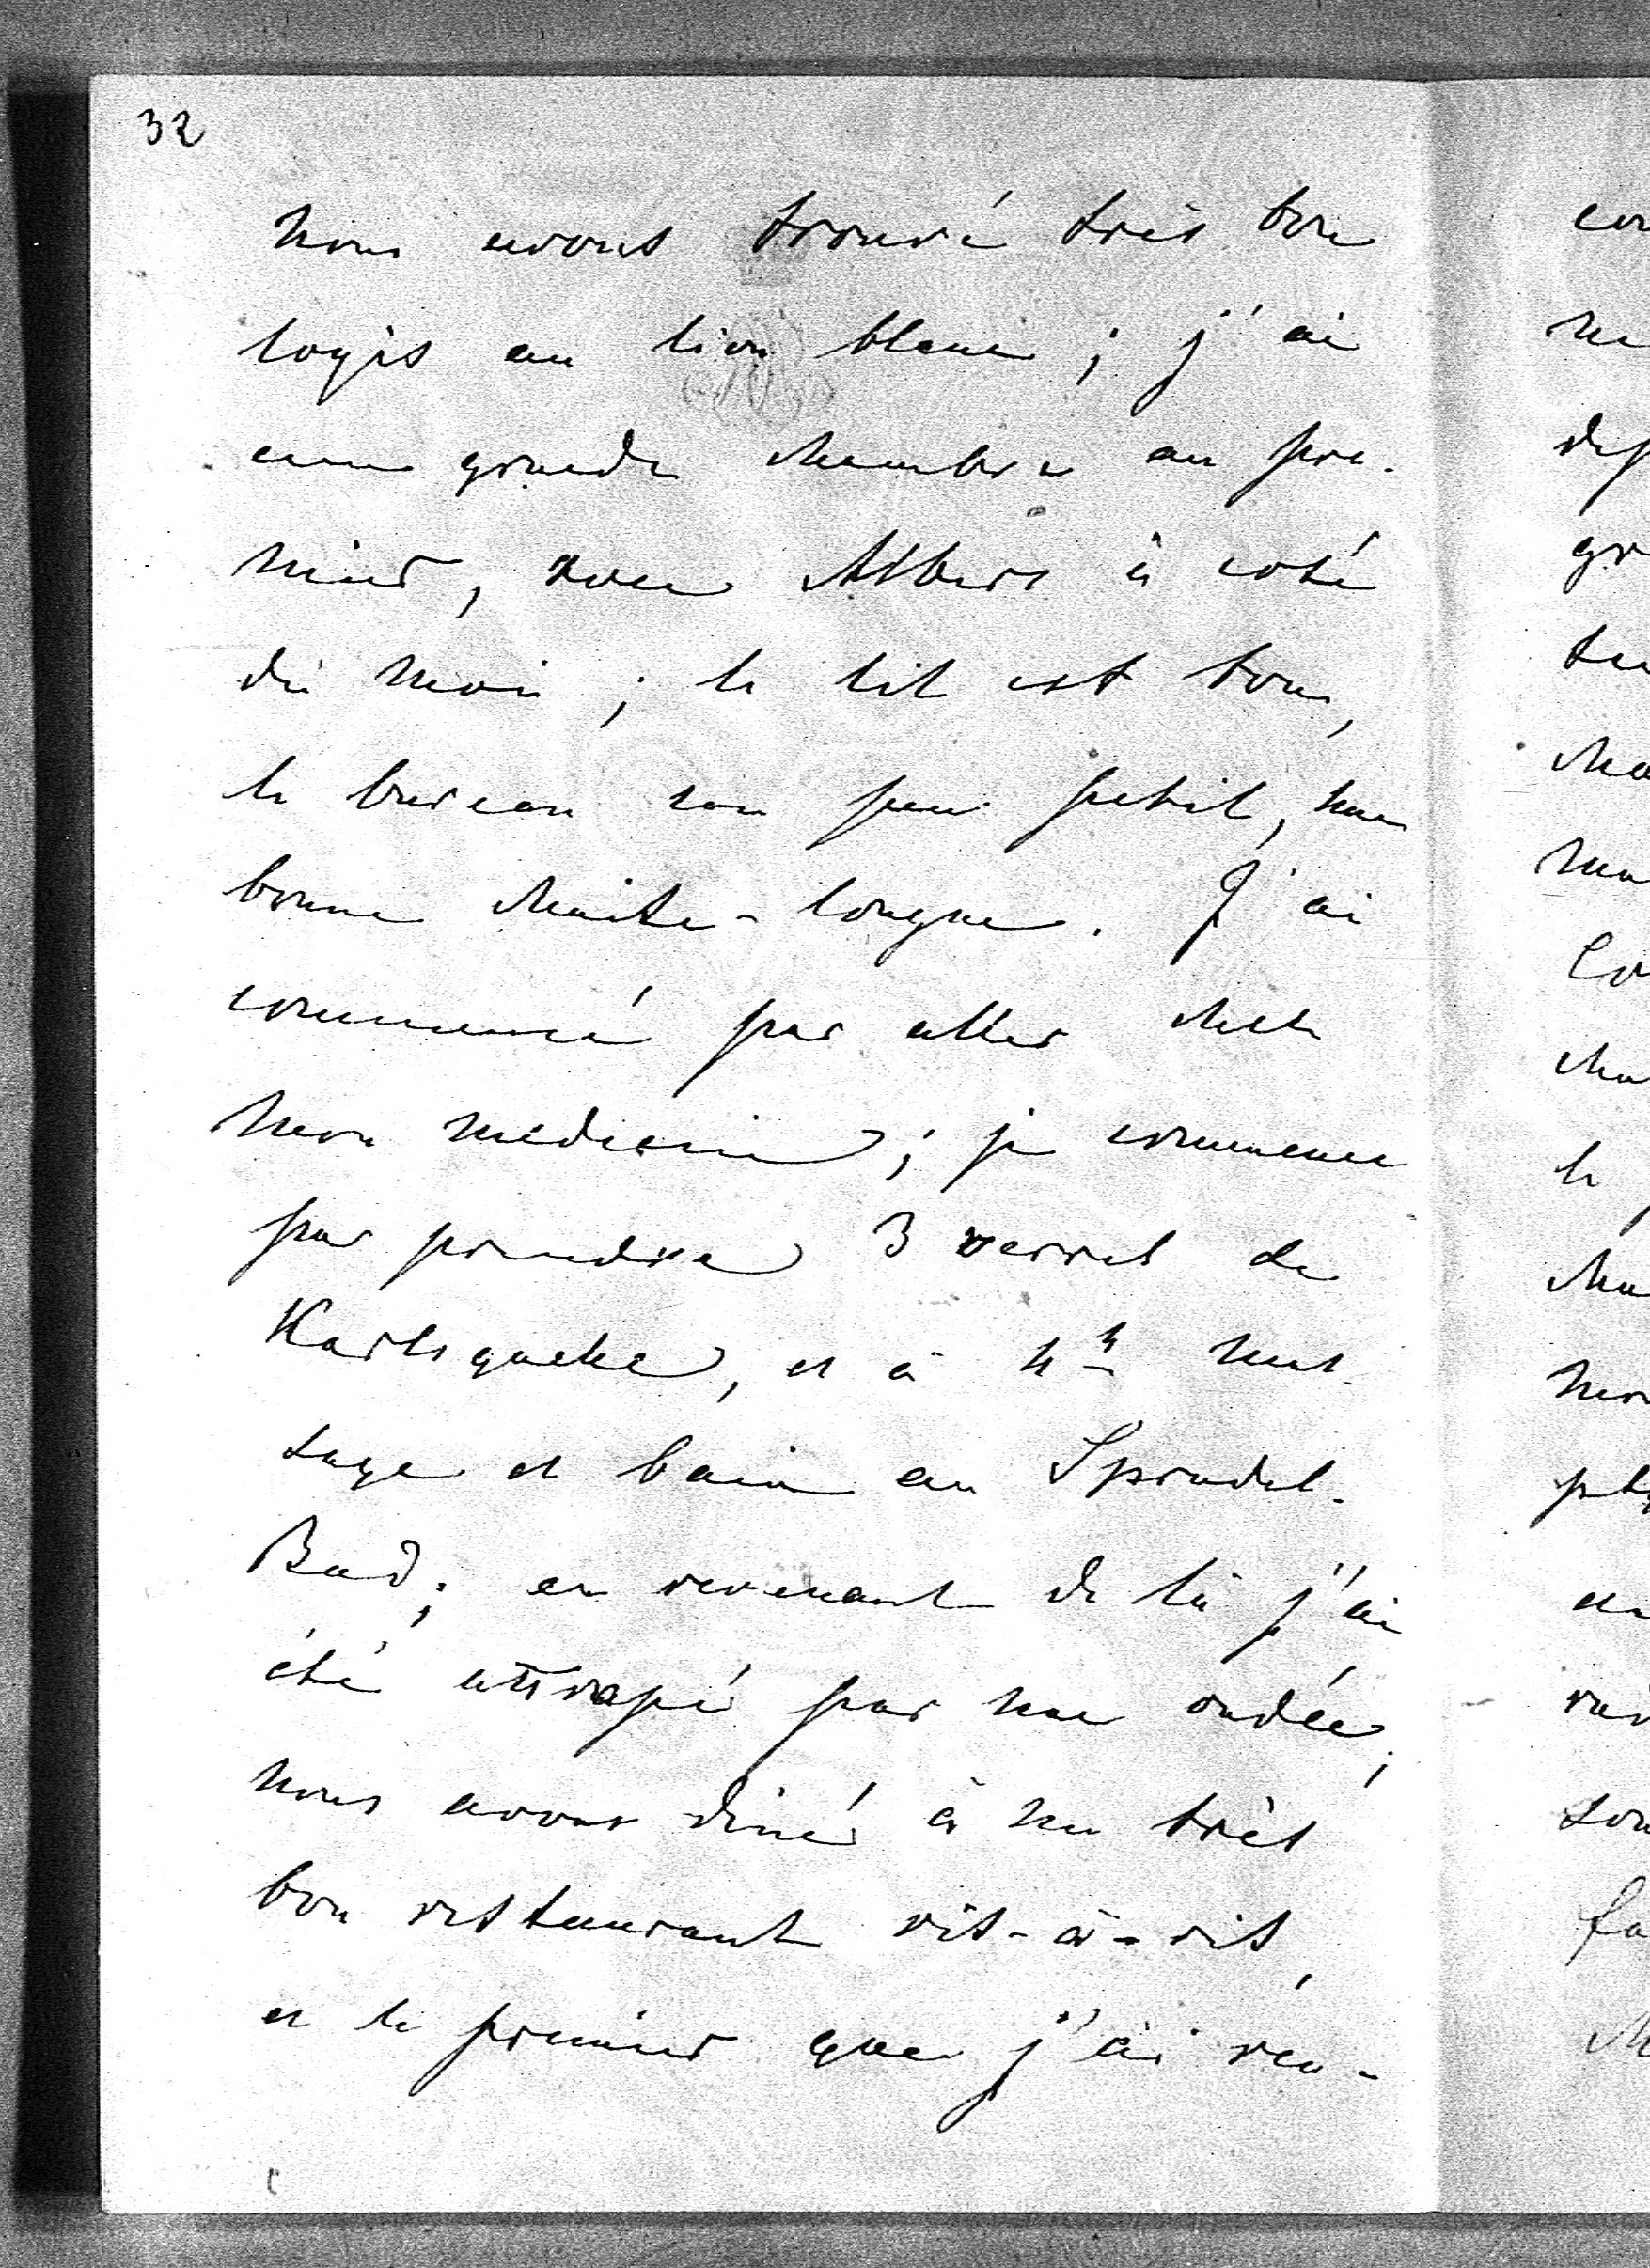 32
nous avons trouvé très bon
logis au lion blanc ; j'ai
une grande chambre au pre-
mier, avec Albert à coté
de moi ; le lit est bon,
le bureau un peu petit, une
bonne chaise-longue. J'ai
commencé par aller chez
mon médecin ; je commence
par prendre 3 verres de
Karlsquelle, et à 4h mas-
sage et bain au Sprudel-
Bad ; en revenant de là j'ai
été attrapé par une ondée ;
nous avons diné à un très
bon restaurant vis-à-vis,
et le premier que j'ai ren-